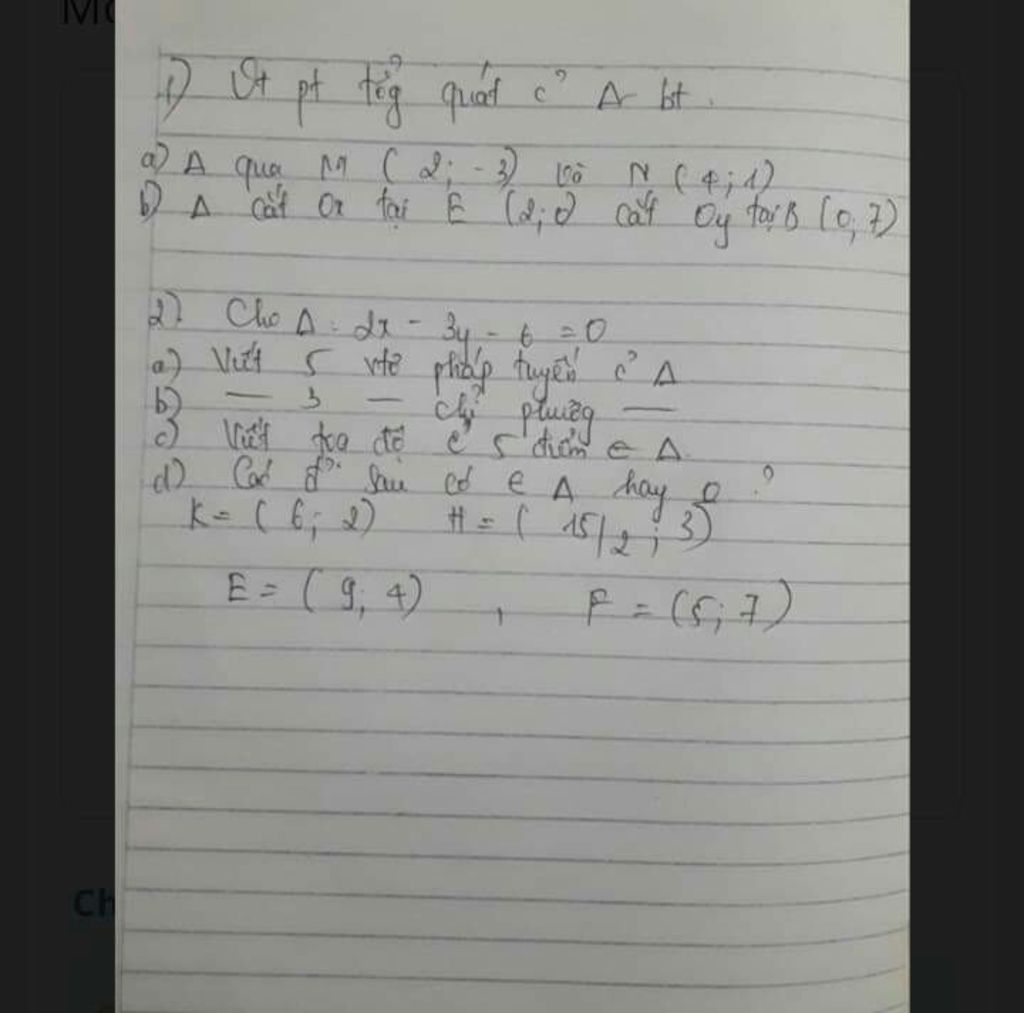 Mo
1) Vt pt tổg quát c̉ Δ bt.
a) Δ qua M (2; -3) và N (4; 1)
b) Δ cắt Ox tại E (2; 0) cắt Oy tại B (0, 7)
2). Cho Δ: 2x - 3y - 6 = 0
a) Viết 5 vtơ pháp tuyến c̉ Δ
b) — 3 — chỉ phươg —
c) Viết tọa độ c̉ 5 điểm ∈ Δ.
d) Các đ' sau có ∈ Δ hay 0 ?
K = (6; 2) H = (15/2; 3)
E = (9; 4) , F = (5; 7)
Ch